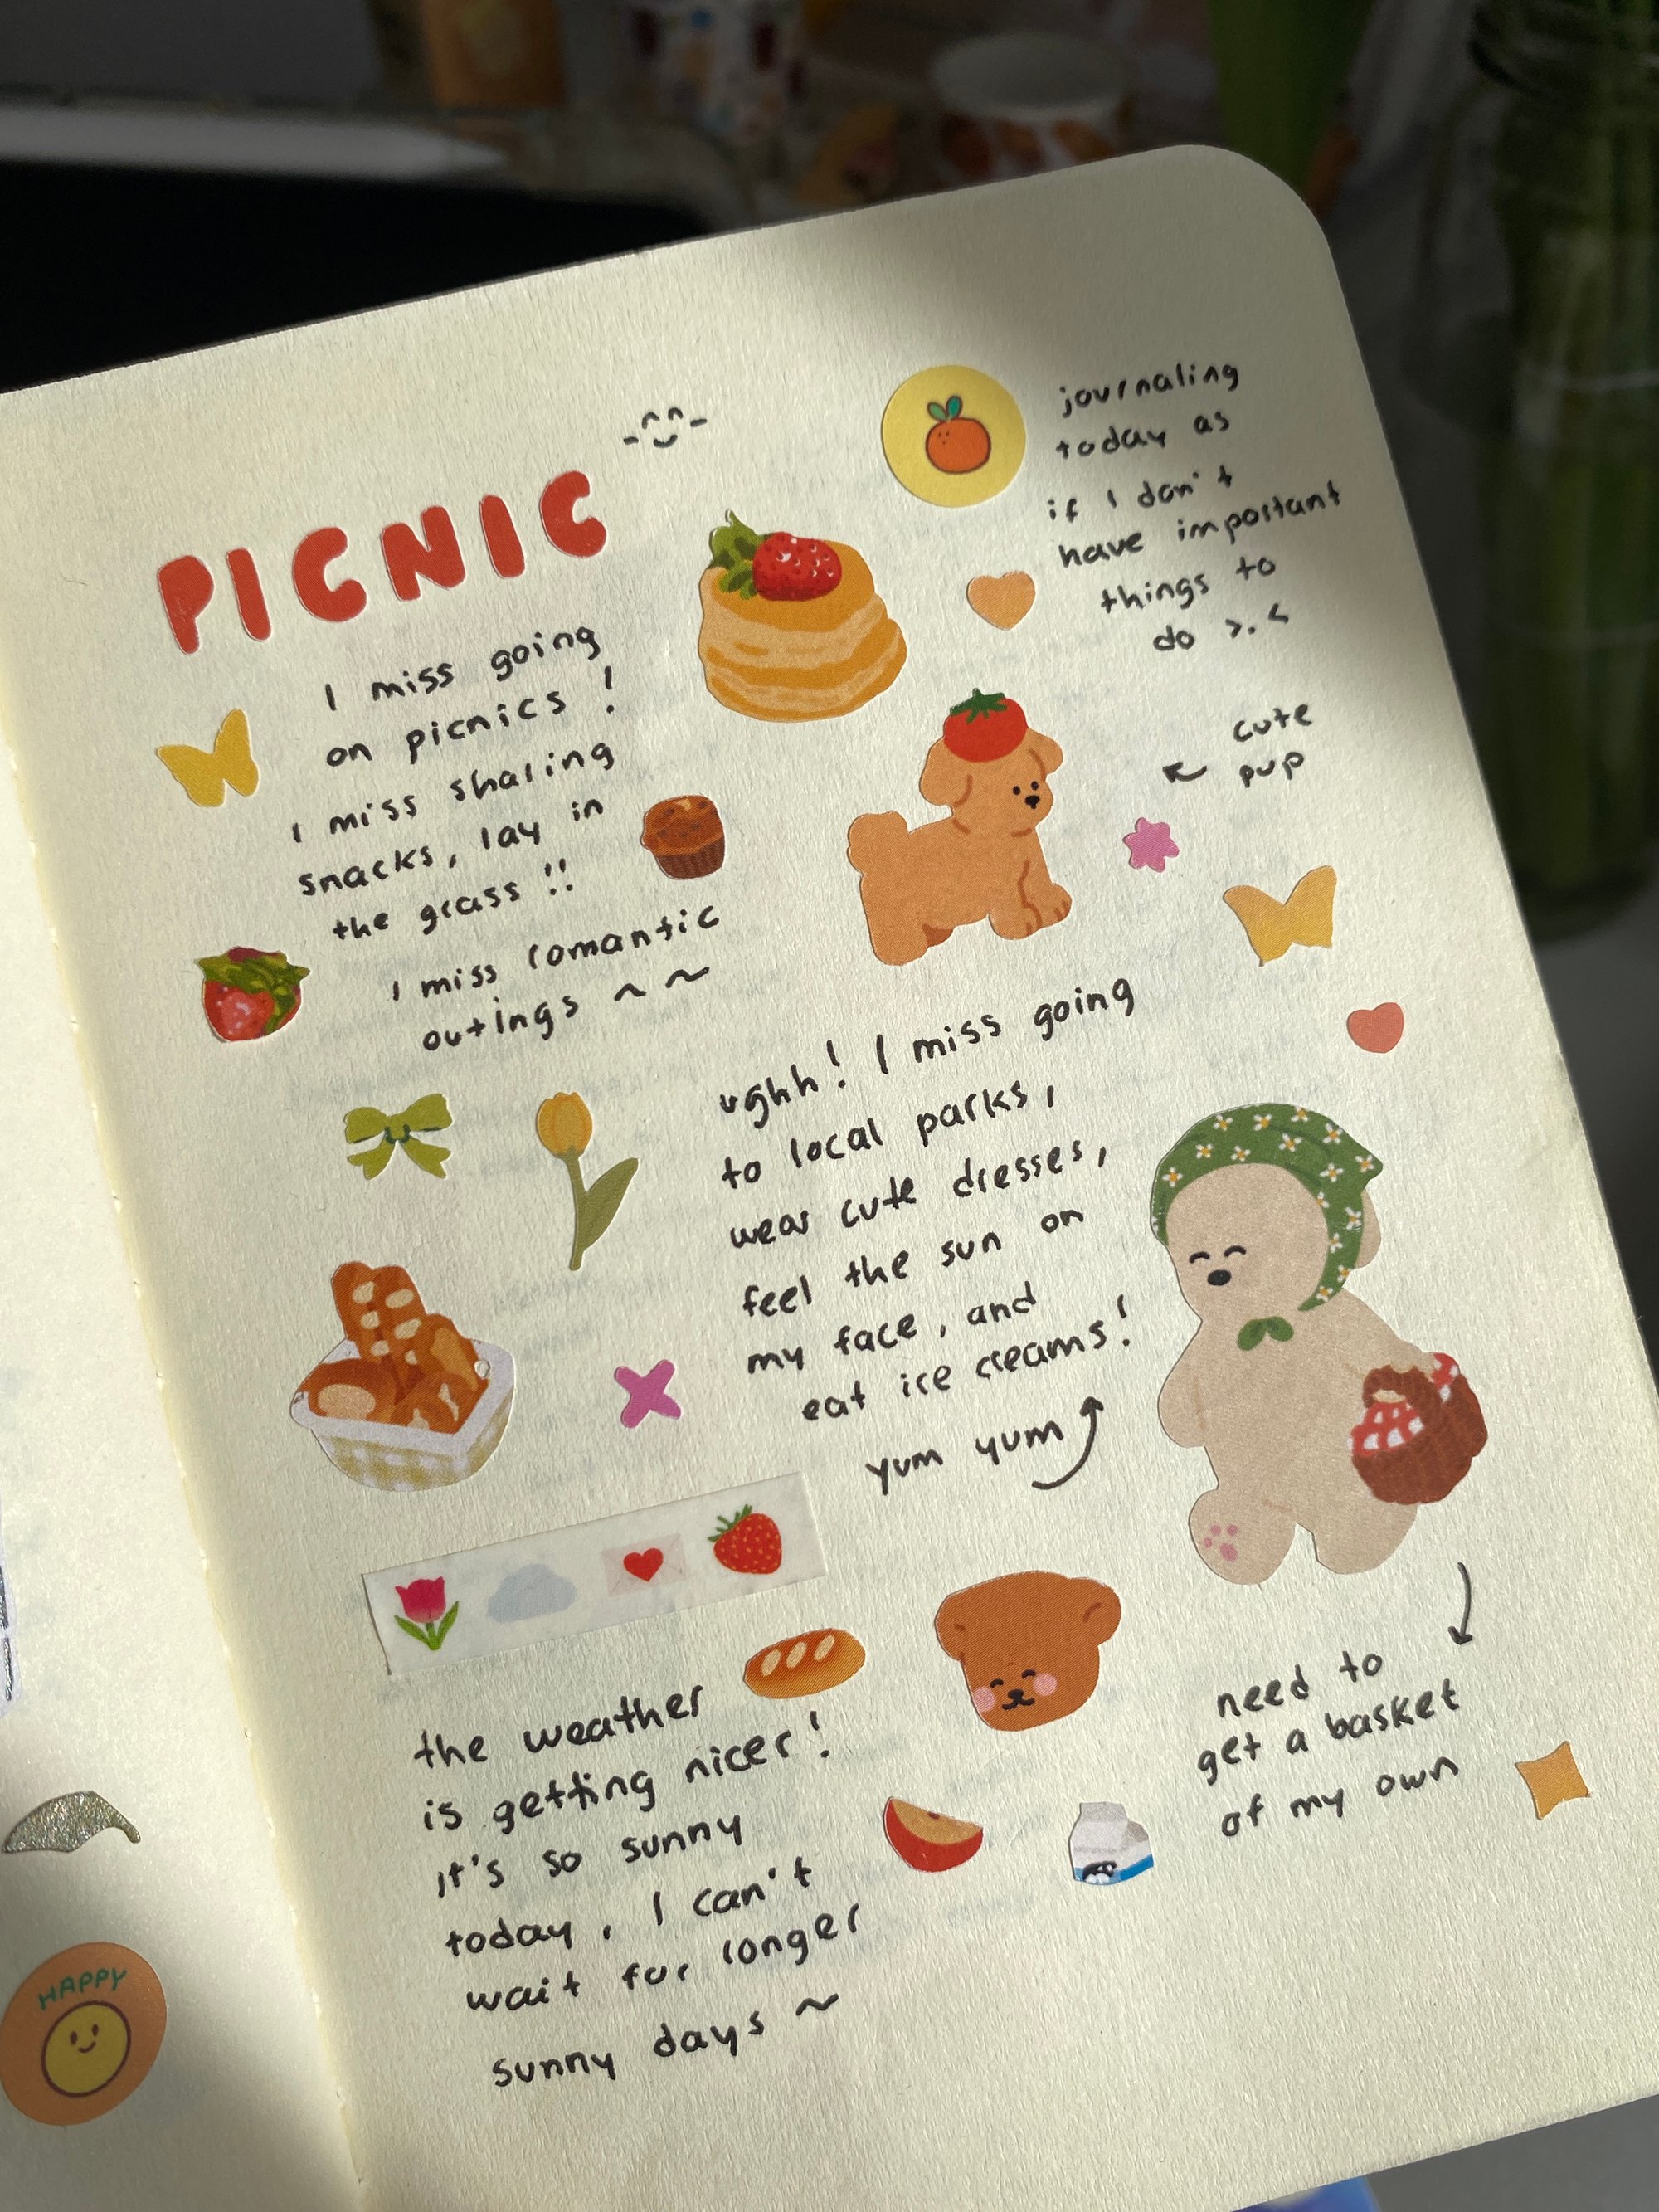 PICNIC
I miss going
on picnics!
I miss sharing
snacks, lay in
the grass!!
I miss romantic
outings ~ ~
journaling
today as
if I don't
have important
things to
do >.<
cute
pup
ughh! I miss going
to local parks,
wear cute dresses,
feel the sun on
my face, and
eat ice creams!
yum yum
need to
get a basket
of my own
the weather
is getting nicer!
it's so sunny
today, I can't
wait for longer
sunny days ~
HAPPY